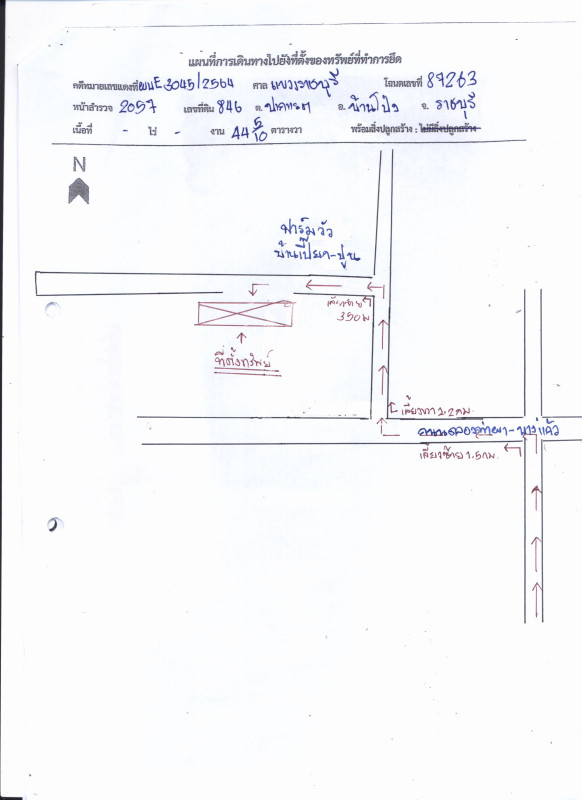 แผนที่การเดินทางไปยังที่ตั้งของทรัพย์ที่ทำการยึด
คดีหมายเลขแดงที่ ผบE3045/2564 ศาล แขวงราชบุรี โฉนดเลขที่ 87263
หน้าสำรวจ 2057 เลขที่ดิน 846 ต. ปากแรต อ. บ้านโป่ง จ. ราชบุรี
เนื้อที่ - ไร่ - งาน 44 5/10 ตารางวา พร้อมสิ่งปลูกสร้าง : ไม่มีสิ่งปลูกสร้าง
N
ฟาร์มวัว
บ้านเปี๊ยก-ปูน
เลี้ยวซ้าย
350 ม
ที่ตั้งทรัพย์
เลี้ยวขวา 2.2 กม.
ถนนคลองท่าผา-บางแก้ว
เลี้ยวซ้าย 1.5 กม.